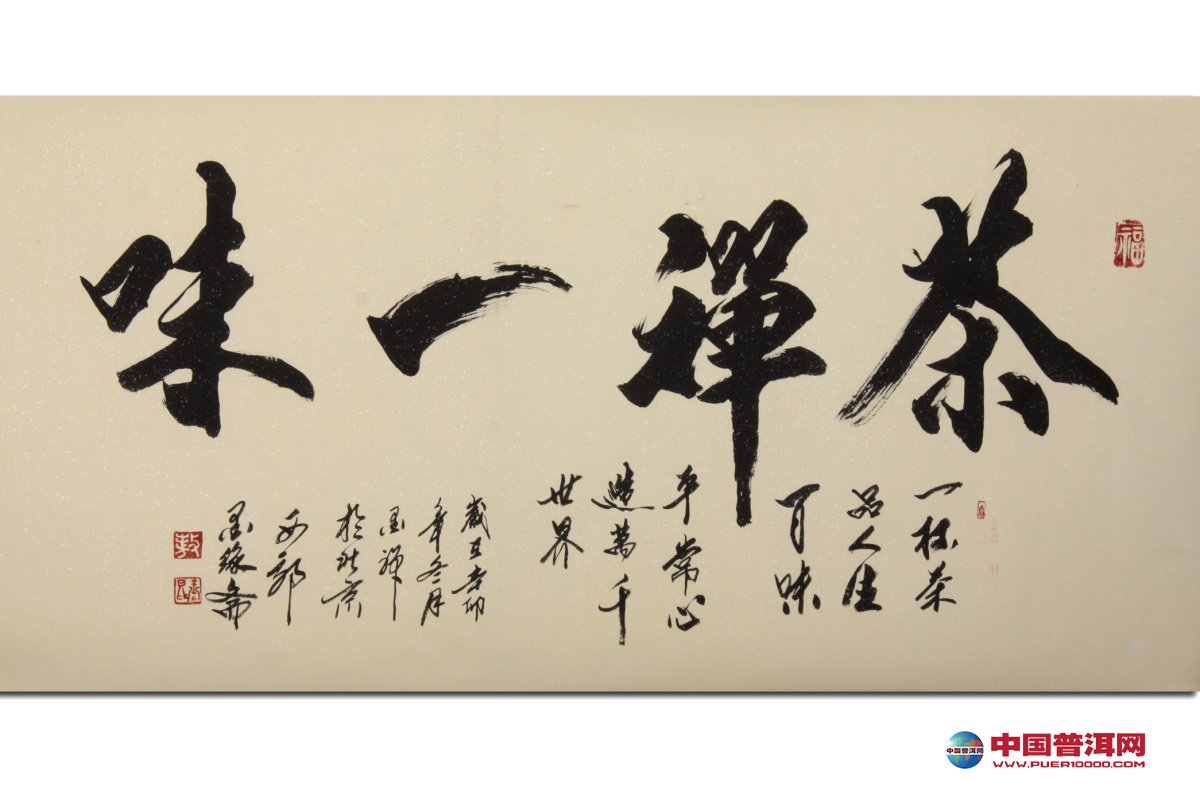 茶禪一味
福
一杯茶
品人生
百味
平常心
造萬千
世界
歲在辛卯
年冬月
墨禪
於北京
西郊
墨緣齋
中国普洱网
WWW.PUER10000.COM
中国普洱网